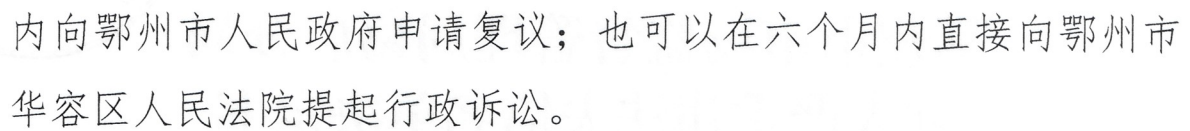 内向鄂州市人民政府申请复议；也可以在六个月内直接向鄂州市
华容区人民法院提起行政诉讼。